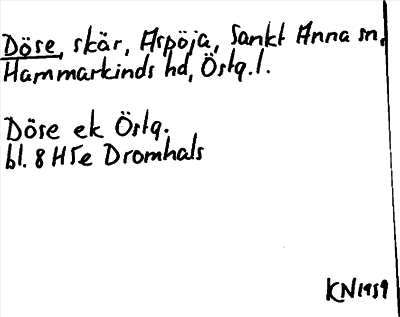 Döse, skär, Aspöja, Sankt Anna sn,
Hammarkinds hd, Östg.l.
Döse ek Östg.
bl. 8 H5e Dromhals
KN1959